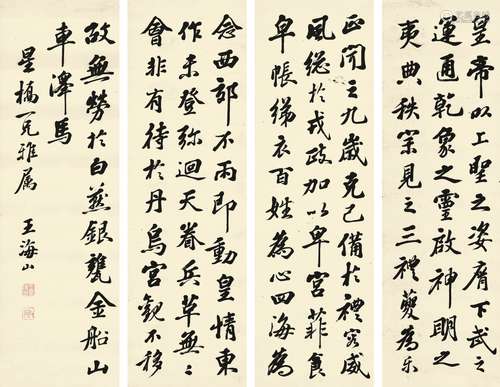 皇帝以上聖之姿膺下武之
運通乾象之靈啟神明之
夷典秩宗見之三禮夔為樂
正聞之九歲克己備於禮容威
風總於戎政加以卑宮菲食
皁帳綈衣百姓為心四海為
念西郊不雨即動皇情東
作未登彌迴天眷兵革無
會非有待於丹烏宮觀不移
故無勞於白燕銀甕金船山
車澤馬
星橋兄雅屬 王海山